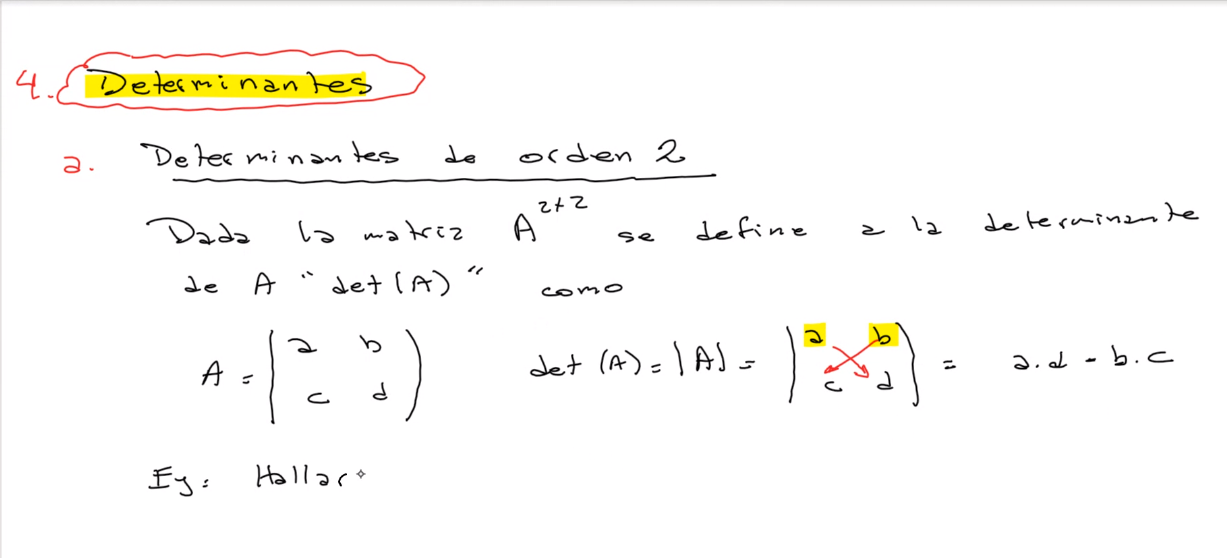 4. Determinantes
a. Determinantes de orden 2
Dada la matriz A^{2x2} se define a la determinante
de A "det(A)" como
A = (a b; c d) det(A) = |A| = |a b; c d| = a.d - b.c
Ej: Hallar